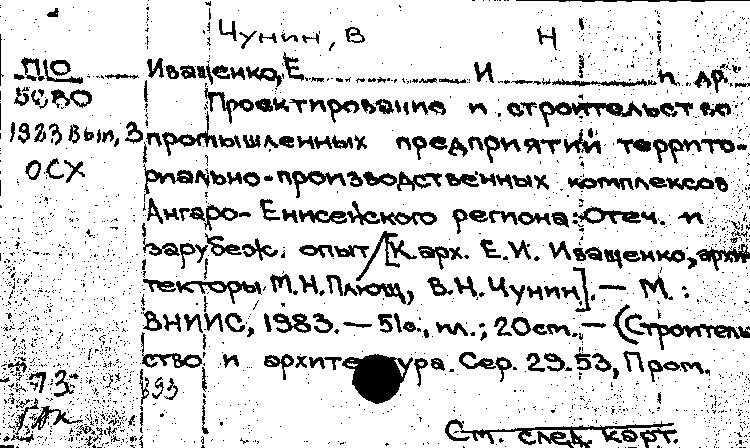 Чунин, В Н
П10 Иващенко, Е И и др.
5080 Проектирование и строительство
1983 Вып, 3 промышленных предприятий террито-
ОСХ риально-производственных комплексов
Ангаро-Енисейского региона: Отеч. и
зарубеж. опыт / [К. арх. Е.И. Иващенко, архи-
текторы М.Н. Плющ, В.Н. Чунин]. — М. :
ВНИИС, 1983. — 51с., ил.; 20см. — (Строитель-
ство и архитектура. Сер. 29.53, Пром.
93 393
См. след. карт.